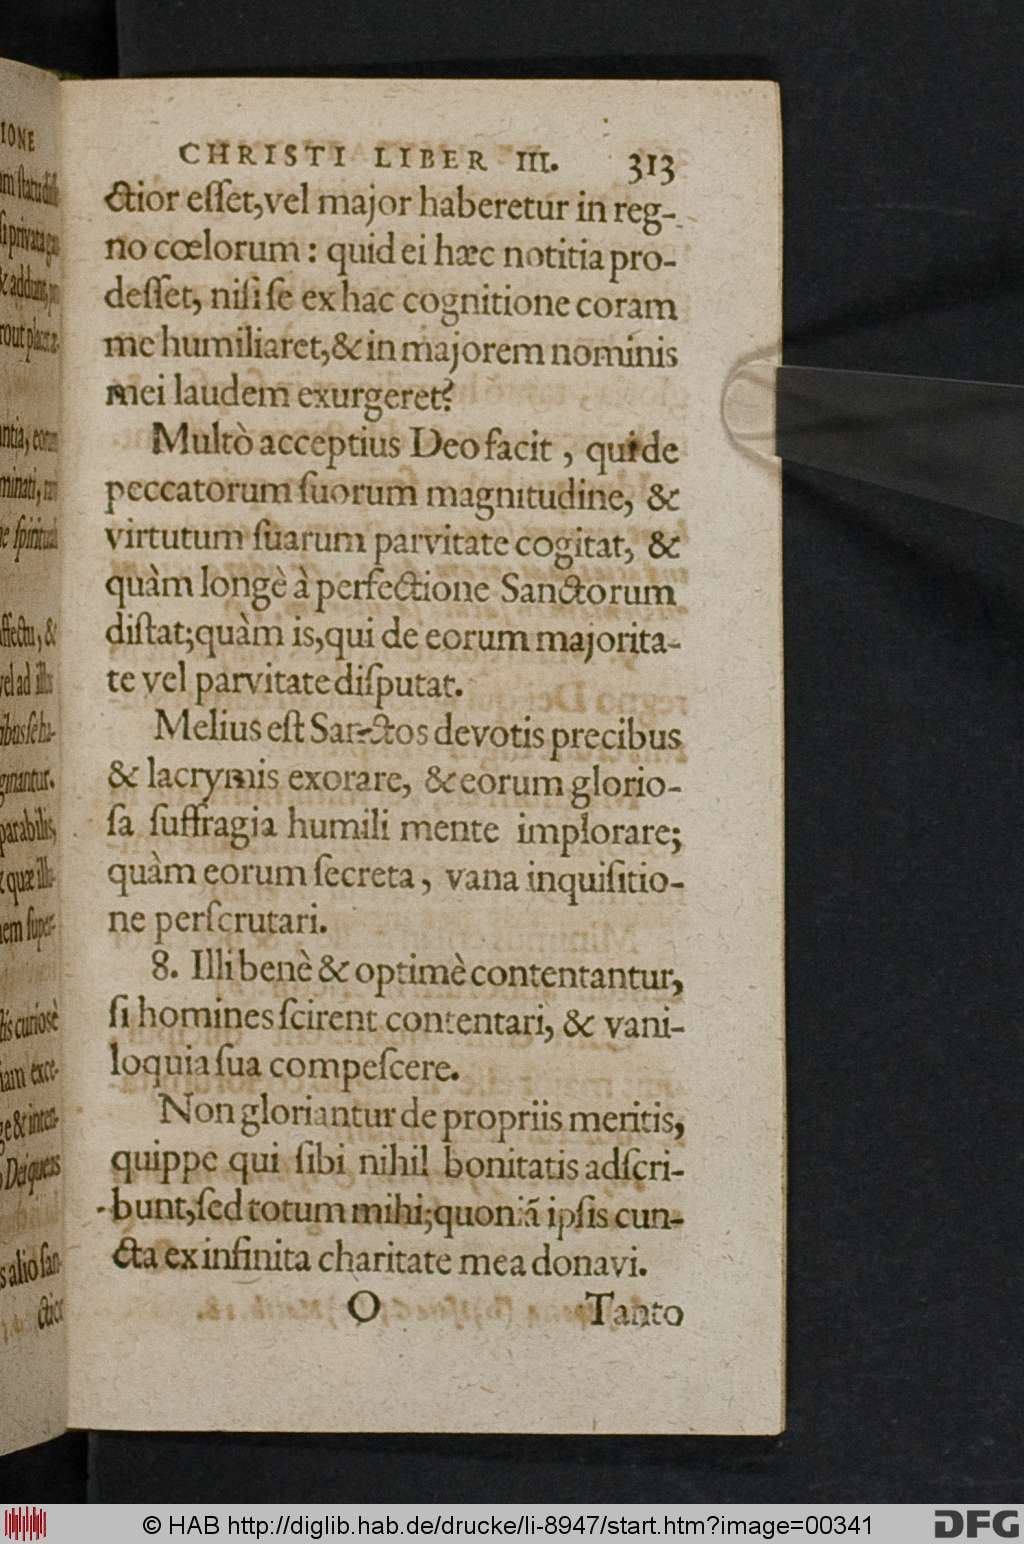 CHRISTI LIBER III. 313
ctior eſſet, vel major haberetur in reg-
no cœlorum: quid ei hæc notitia pro-
deſſet, niſi ſe ex hac cognitione coram
me humiliaret, & in majorem nominis
mei laudem exurgeret?
Multò acceptius Deo facit, qui de
peccatorum ſuorum magnitudine, &
virtutum ſuarum parvitate cogitat, &
quàm longè à perfectione Sanctorum
diſtat; quàm is, qui de eorum majorita-
te vel parvitate diſputat.
Melius eſt Sanctos devotis precibus
& lacrymis exorare, & eorum glorio-
ſa ſuffragia humili mente implorare;
quàm eorum ſecreta, vana inquiſitio-
ne perſcrutari.
8. Illi benè & optimè contentantur,
ſi homines ſcirent contentari, & vani-
loquia ſua compeſcere.
Non gloriantur de propriis meritis,
quippe qui ſibi nihil bonitatis adſcri-
bunt, ſed totum mihi; quoniã ipſis cun-
cta ex infinita charitate mea donavi.
O Tanto
© HAB http://diglib.hab.de/drucke/li-8947/start.htm?image=00341
DFG